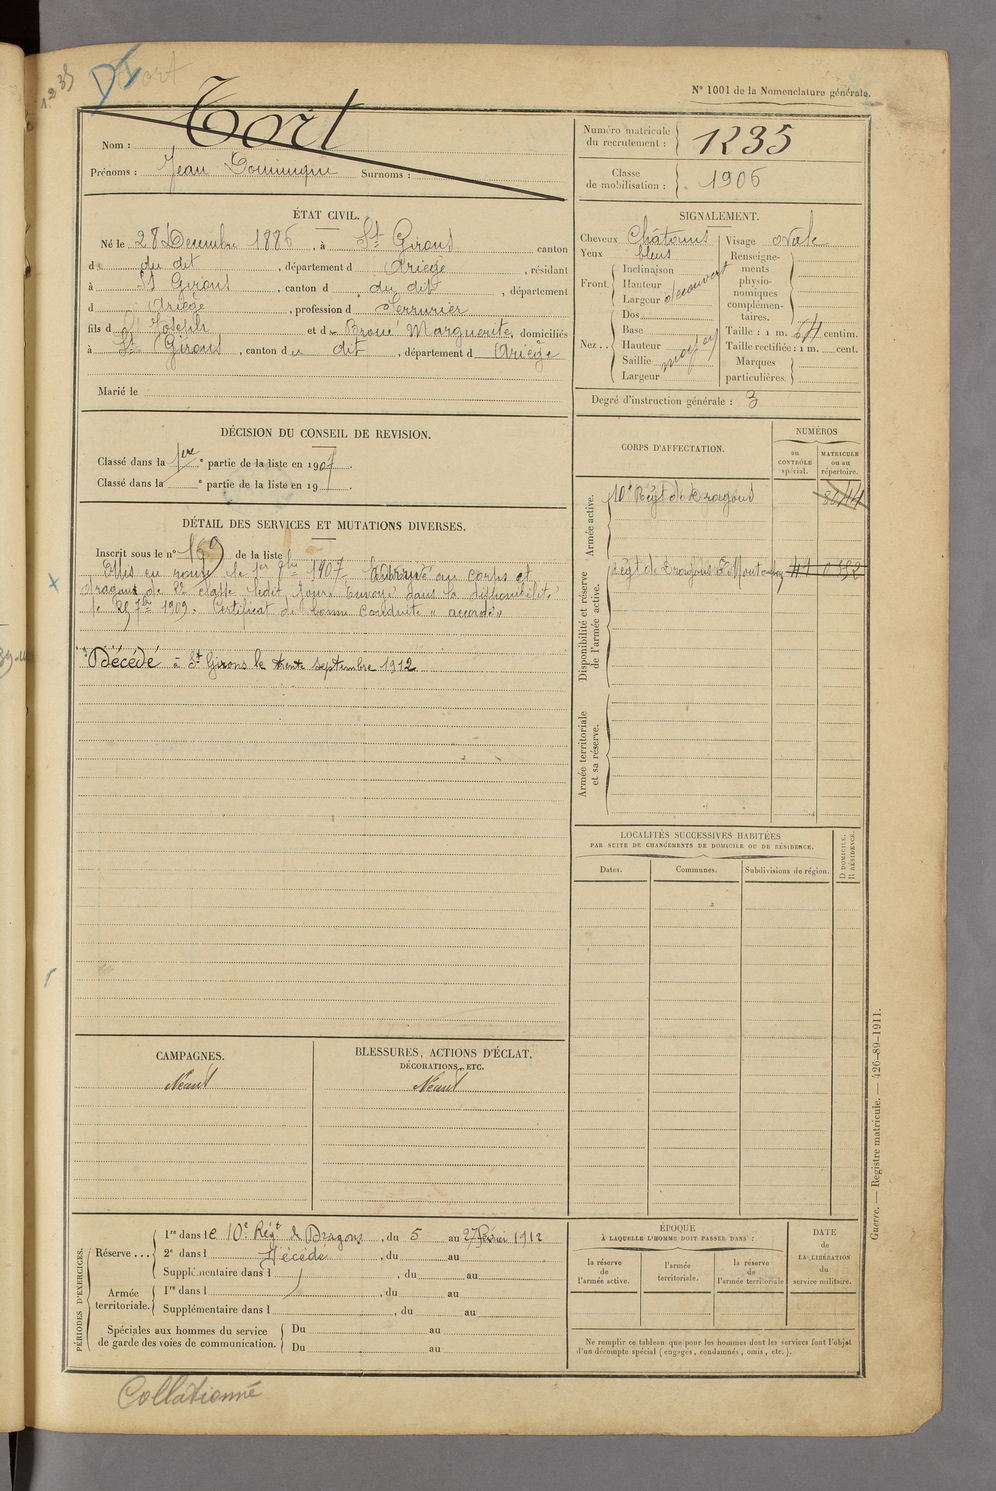 1235
Tort
N° 1001 de la Nomenclature générale.
Tort
Nom :
Prénoms : Jean Dominique Surnoms :
Numéro matricule du recrutement : 1235
Classe de mobilisation : 1906
ÉTAT CIVIL.
Né le 28 Décembre 1886, à St Girons canton
d du dit, département d Ariège, résidant
à St Girons, canton d du dit, département
d Ariège, profession d Serrurier
fils d Joseph et de Marguerite, domiciliés
à St Girons, canton du dit, département d Ariège
Marié le
SIGNALEMENT.
Cheveux Châtains Visage ovale
Yeux bleus
Front. Inclinaison
Hauteur découvert
Largeur
Nez.. Dos
Base
Hauteur moyen
Saillie
Largeur
Renseignements physionomiques complémentaires.
Taille : 1 m. centim.
Taille rectifiée : 1 m. cent.
Marques particulières.
Degré d'instruction générale : 3
DÉCISION DU CONSEIL DE REVISION.
Classé dans la 1ere ° partie de la liste en 1907.
Classé dans la ° partie de la liste en 19 .
CORPS D'AFFECTATION.
NUMÉROS
au CONTRÔLE spécial.
MATRICULE ou au répertoire.
Armée active.
10e Régt de Dragons
Disponibilité et réserve de l'armée active.
Régt de Dragons à Montauban
Armée territoriale et sa réserve.
DÉTAIL DES SERVICES ET MUTATIONS DIVERSES.
Inscrit sous le n° 169 de la liste
Mis en route le 1er 8bre 1907. au corps et
dragons de 2e classe ledit jour. Envoyé dans la disponibilité
le 25 7bre 1909. Certificat de bonne conduite « accordé »
Décédé à St Girons le trente septembre 1912
LOCALITÉS SUCCESSIVES HABITÉES
PAR SUITE DE CHANGEMENTS DE DOMICILE OU DE RÉSIDENCE.
Dates. Communes. Subdivisions de région. D DOMICILE. R RÉSIDENCE.
CAMPAGNES.
Néant
BLESSURES, ACTIONS D'ÉCLAT, DÉCORATIONS, ETC.
Néant
PÉRIODES D'EXERCICES.
Réserve ... 1re dans le 10e Régt de Dragons, du 5 au 27 Février 1912
2e dans l Décédé, du au
Supplémentaire dans l , du au
Armée territoriale. 1re dans l , du au
Supplémentaire dans l , du au
Spéciales aux hommes du service de garde des voies de communication. Du au
Du au
ÉPOQUE
À LAQUELLE L'HOMME DOIT PASSER DANS :
la réserve de l'armée active.
l'armée territoriale.
la réserve de l'armée territoriale
DATE de LA LIBÉRATION du service militaire.
Ne remplir ce tableau que pour les hommes dont les services font l'objet
d'un décompte spécial (engagés, condamnés, omis, etc.).
Guerre. — Registre matricule. — 426-89-1911.
Collationné